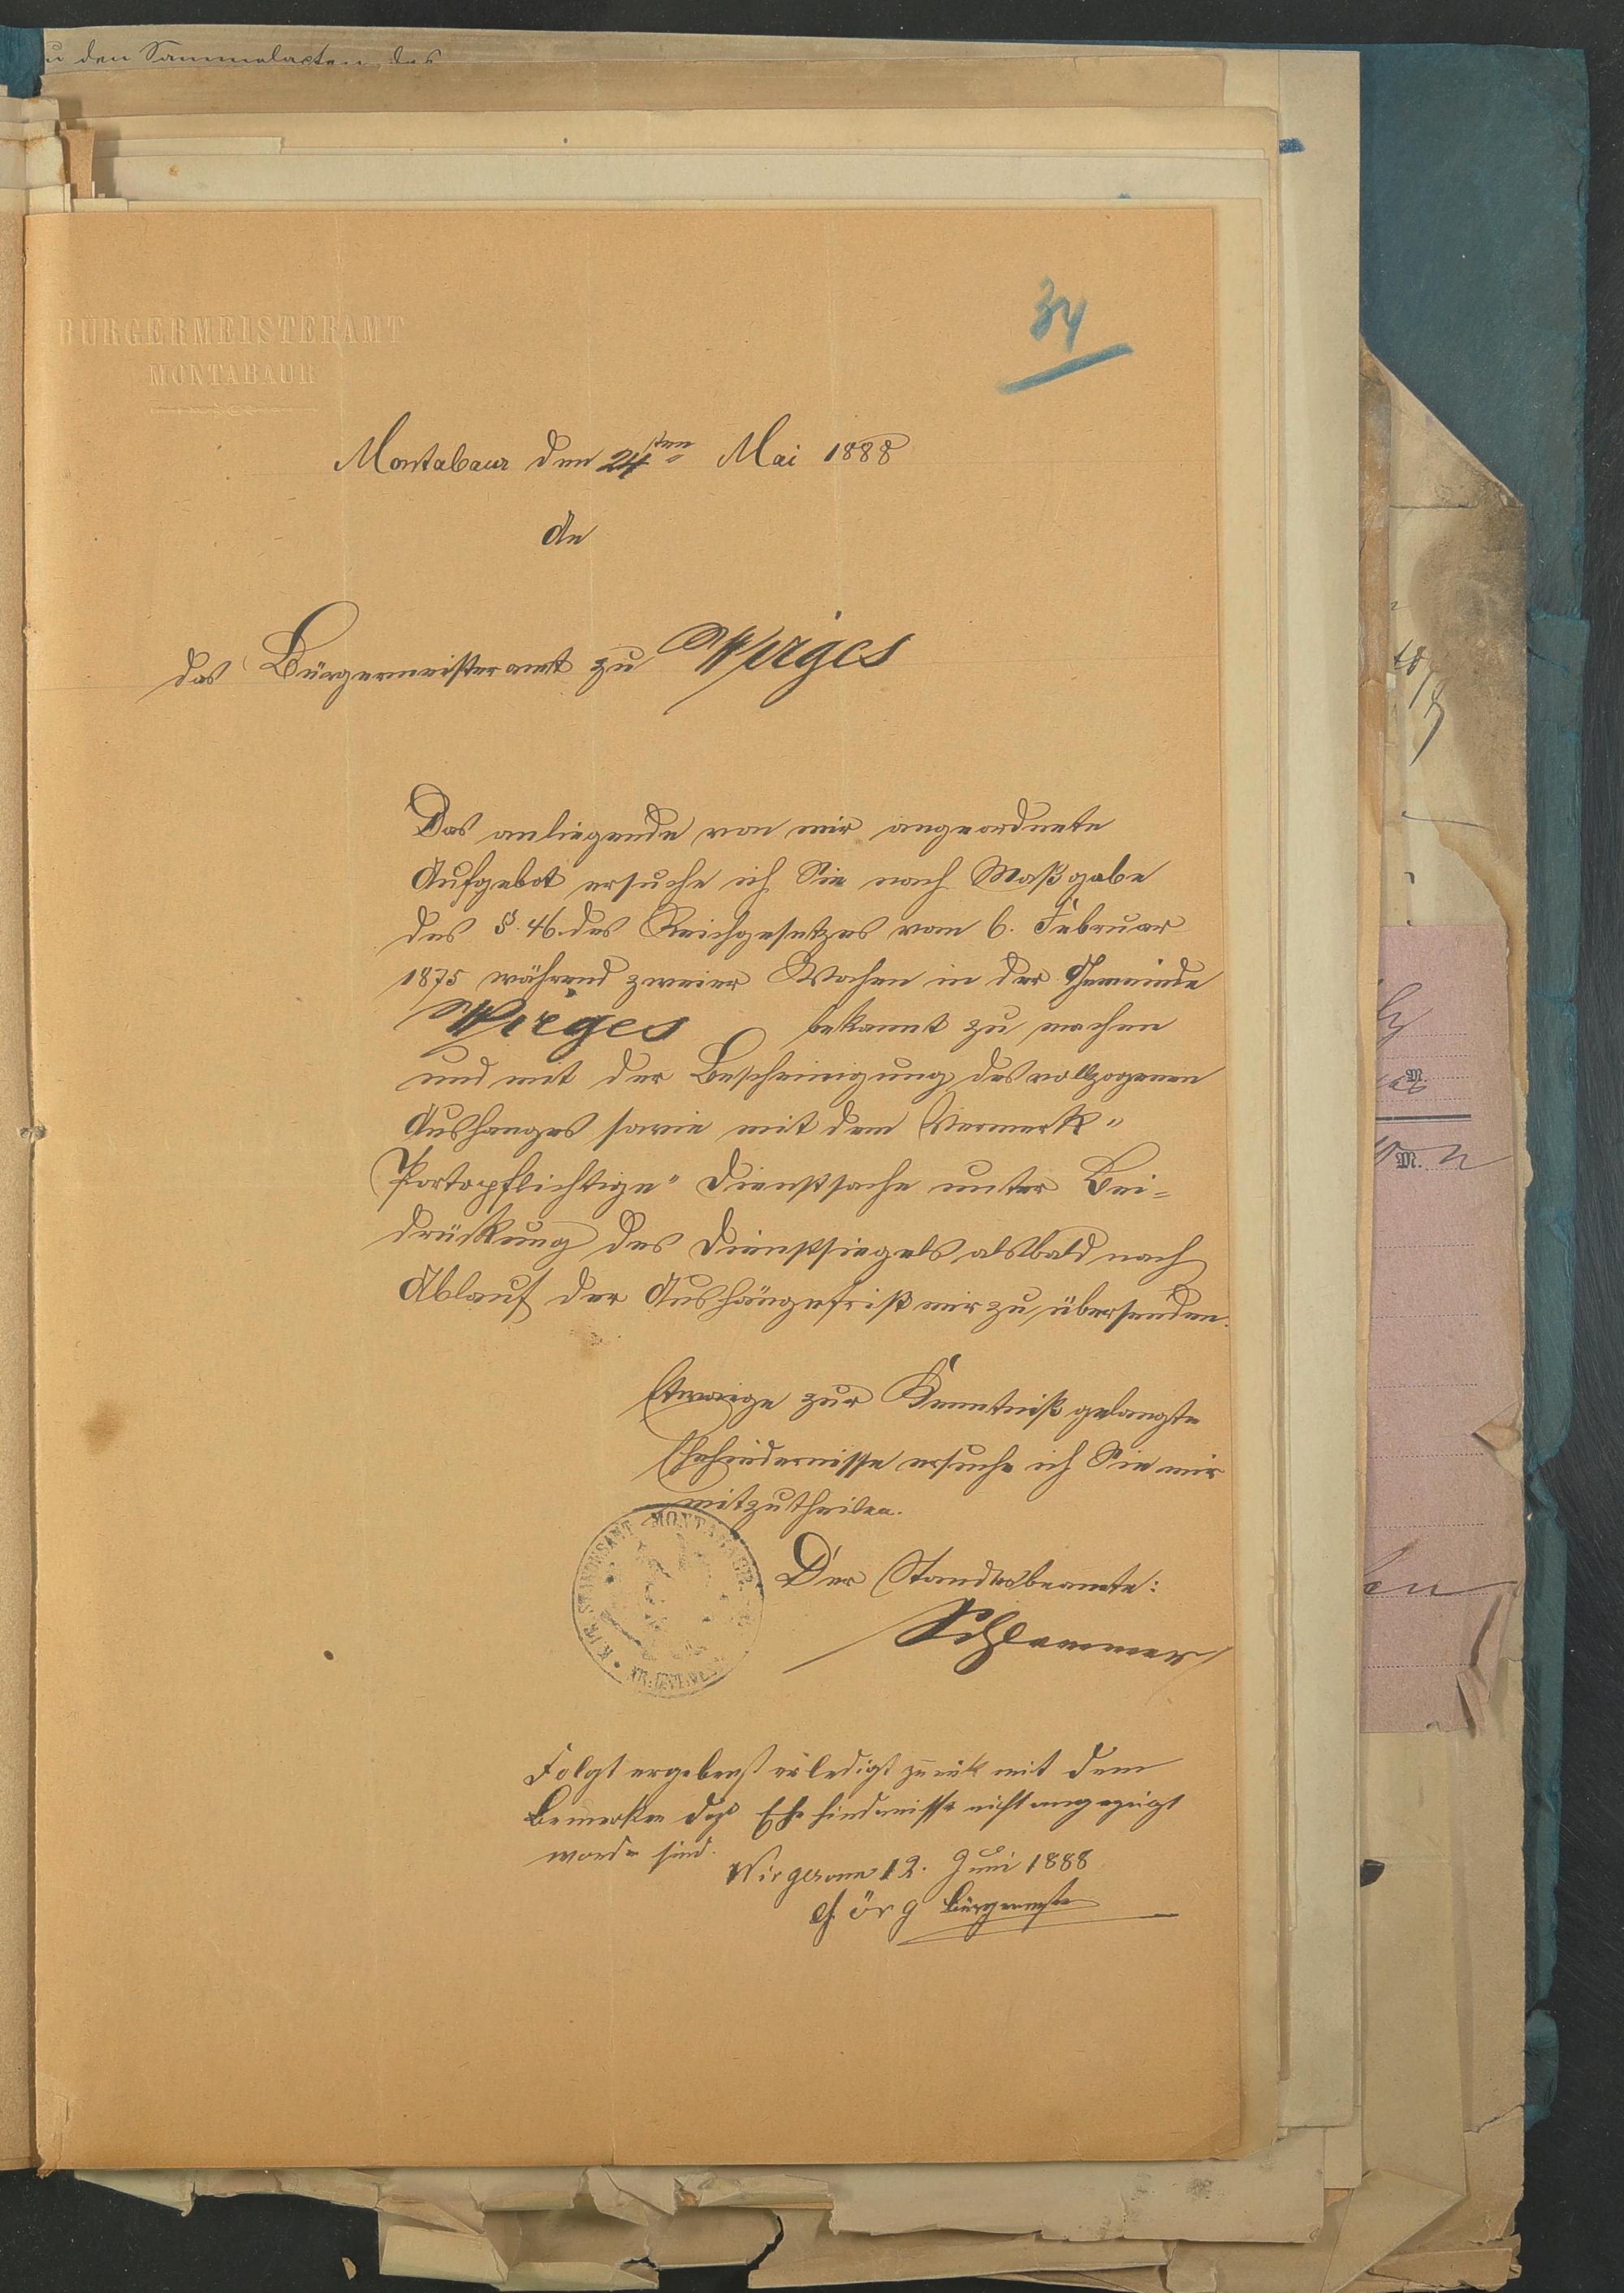 u den Sammelacten des
BÜRGERMEISTERAMT
MONTABAUR
34
Montabaur den 24sten Mai 1888
An
das Bürgermeisteramt zu Wirges
Das anliegende von mir angeordnete
Aufgebot ersuche ich Sie nach Maßgabe
des §. 46. des Reichgesetzes vom 6. Februar
1875 während zweier Wochen in der Gemeinde
Wirges bekannt zu machen
und mit der Bescheinigung des vollzogenen
Aushanges sowie mit dem Vermerk "
Portopflichtige" Dienstsache unter Bei=
drückung des Dienstsiegels alsbald nach
Ablauf der Aushängefrist mir zu übersenden.
Etwaige zur Kenntniß gelangte
Ehehindernisse ersuche ich Sie mir
mitzutheilen.
STANDESAMT MONTABAUR
Der Standesbeamte:
Schlemmer
Folgt ergebenst erledigt zurück mit dem
Bemerken daß Ehehindernisse nicht angezeigt
worden sind.
Wirges vom 12. Juni 1888
Bürgermeister
M.
M.